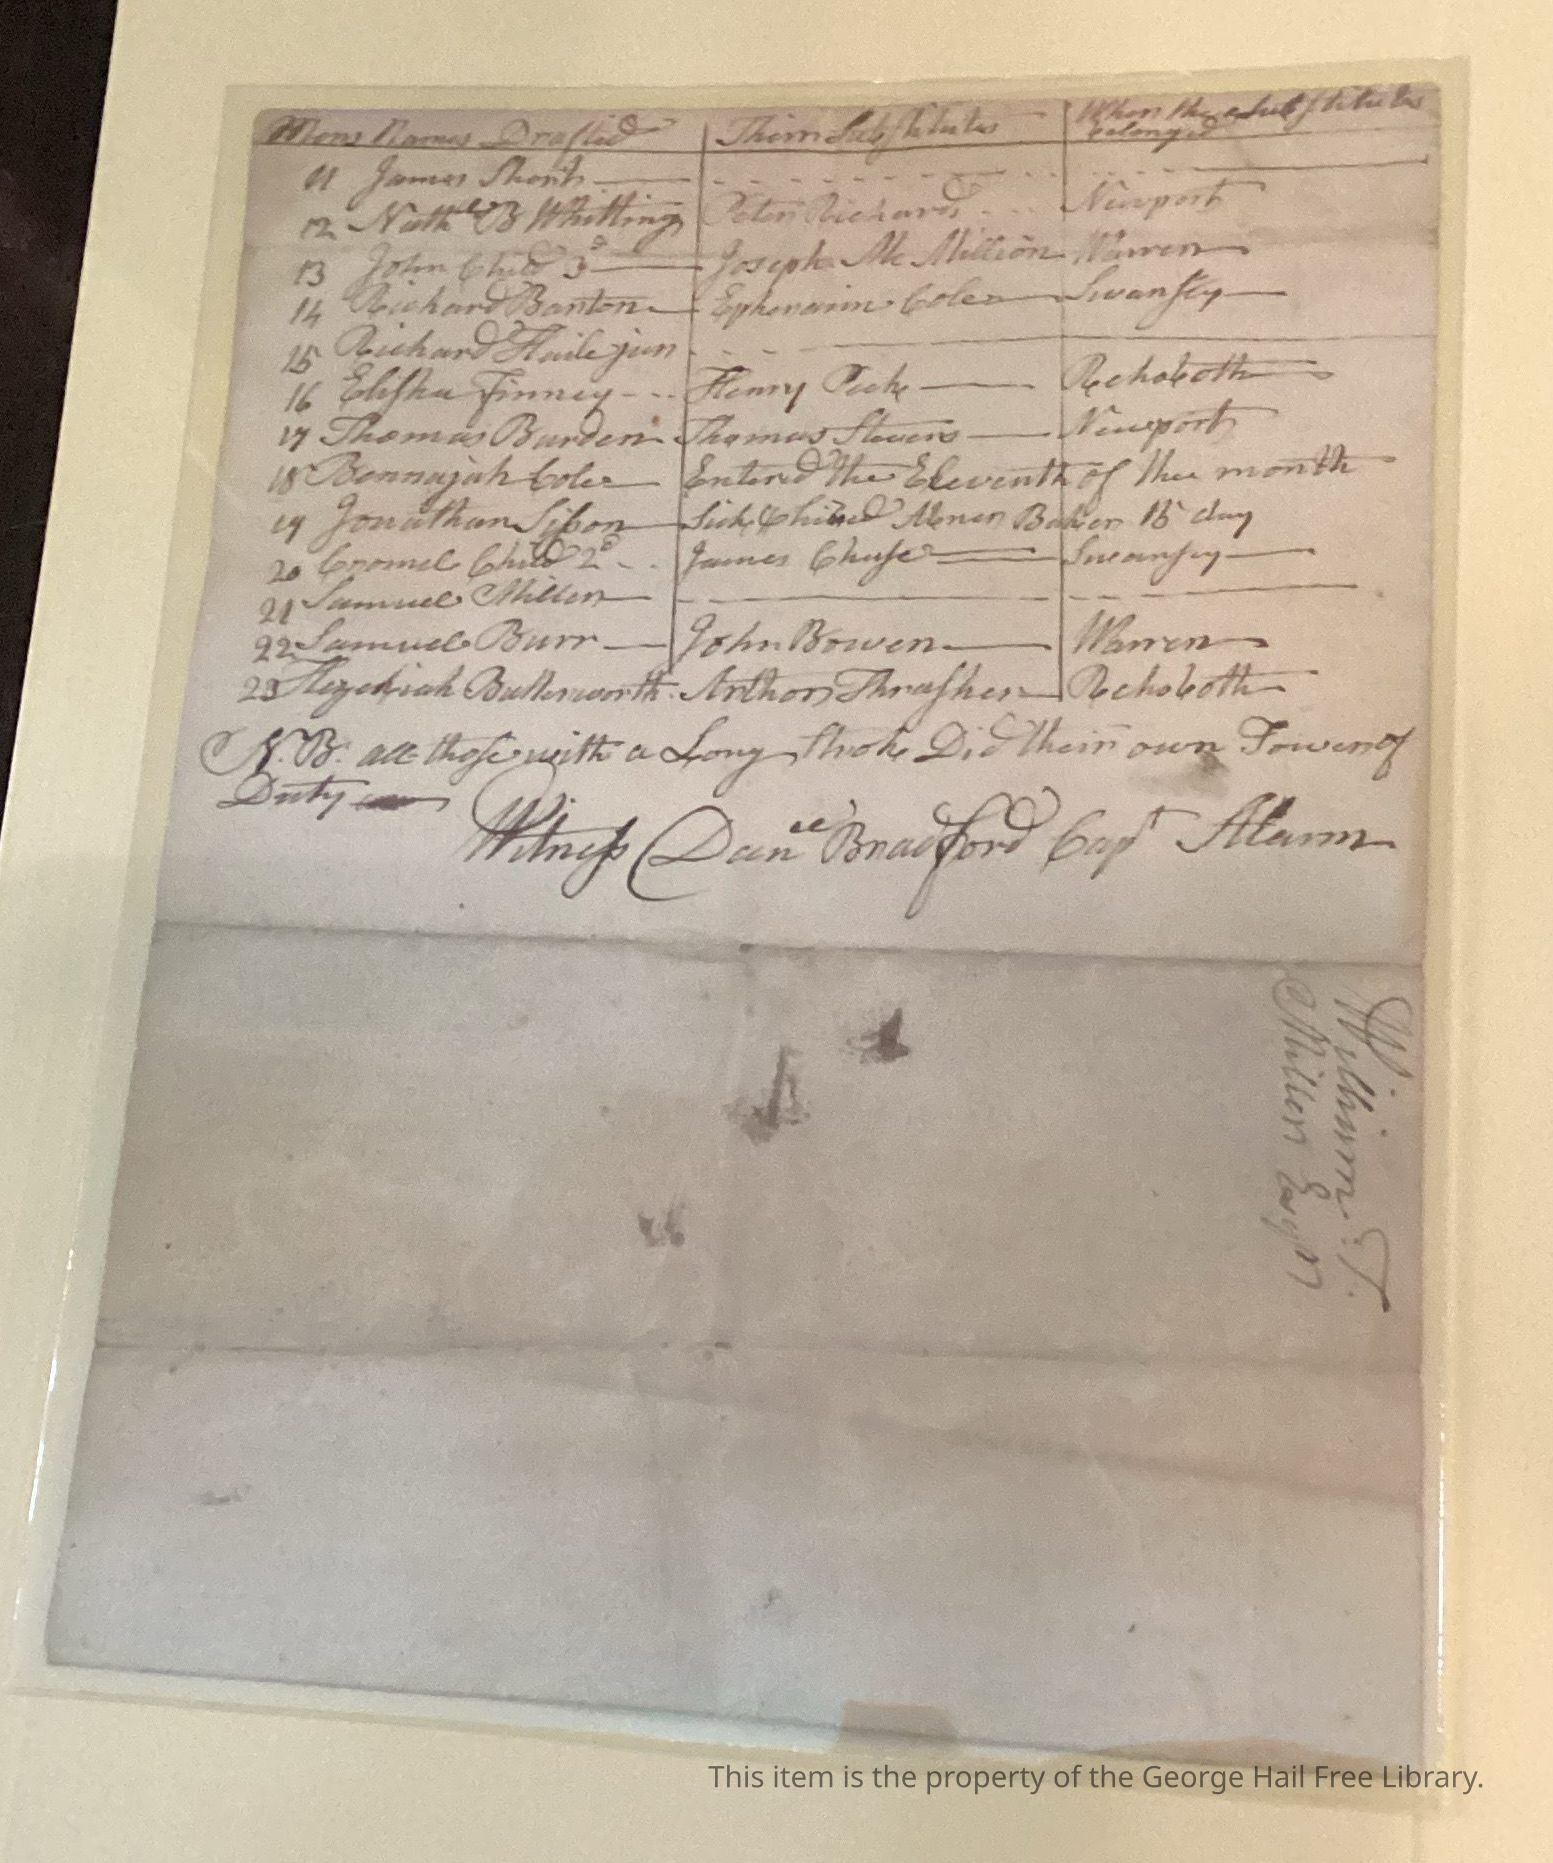 Mens Names Drafted Their Substitutes When the substitutes belonged
11 James Short
12 Nathel B Whitting Peter Richards Newport
13 John Child 3d Joseph Mc Million Warren
14 Richard Barton Ephraim Cole Swansey
15 Richard Haile jun
16 Elisha Finney Henry Peck Rehoboth
17 Thomas Burden Thomas Stevens Newport
18 Bennajah Cole Entered the Eleventh of the month
19 Jonathan Sison Sick & hired Abner Baker 15 day
20 Cromel Child 2d James Chase Swansey
21 Samuel Miller
22 Samuel Burr John Bowen Warren
23 Hezekiah Butterworth Arthor Thrasher Rehoboth
N.B. all those with a Long Stroke Did their own Tower of
Duty
Witness Danel Bradford Capt Alarm
William T.
Miller Esqr
This item is the property of the George Hail Free Library.